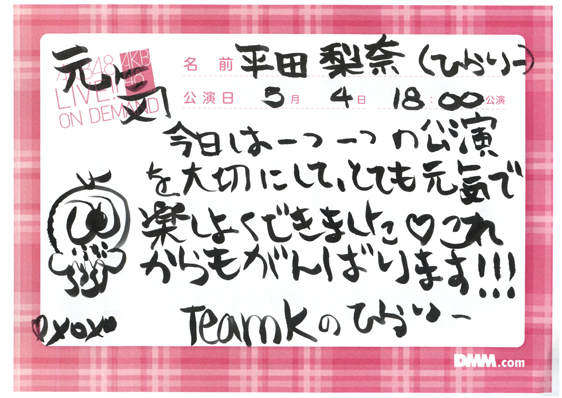 元気
AKB48 AKB48
LIVE!! ON DEMAND
名前 平田 梨奈 (ひらりー)
公演日 5月 4日 18:00公演
今日は一つ一つの公演
を大切にして、とても元気で
楽しよくできました♡これ
からもがんばります!!!
TeamKのひらりー
DMM.com